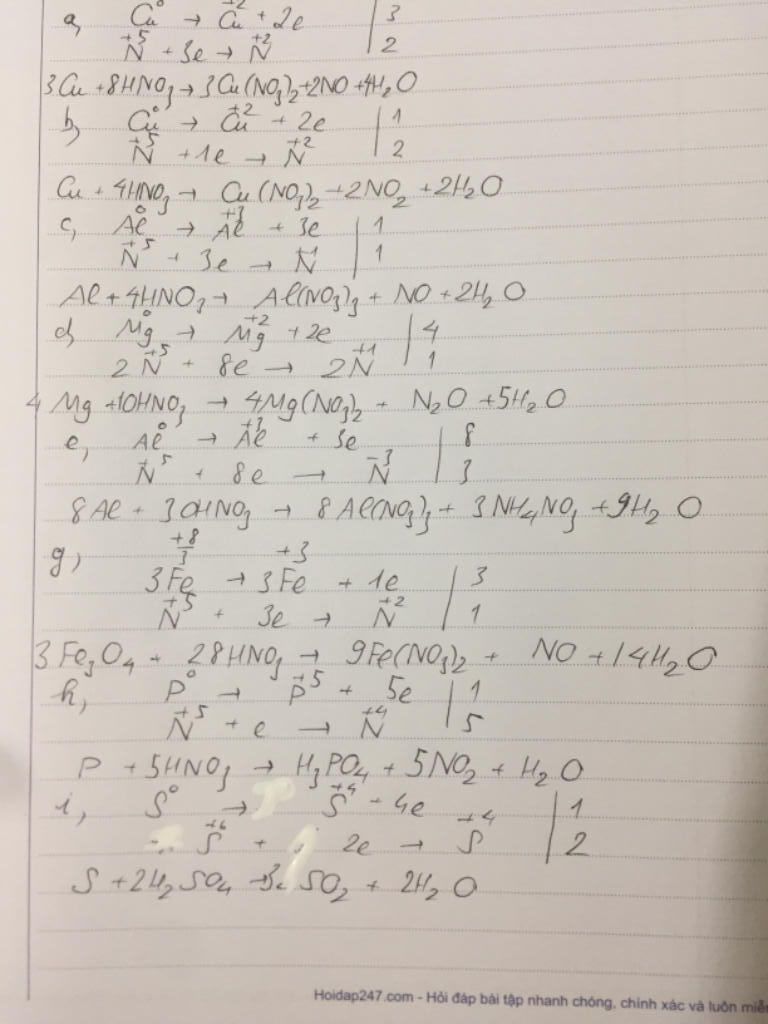 a, Cu⁰ → Cu⁺² + 2e | 3
N⁺⁵ + 3e → N⁺² | 2
3Cu + 8HNO₃ → 3Cu(NO₃)₂ + 2NO + 4H₂O
b, Cu⁰ → Cu⁺² + 2e | 1
N⁺⁵ + 1e → N⁺² | 2
Cu + 4HNO₃ → Cu(NO₃)₂ + 2NO₂ + 2H₂O
c, Al⁰ → Al⁺³ + 3e | 1
N⁺⁵ + 3e → N | 1
Al + 4HNO₃ → Al(NO₃)₃ + NO + 2H₂O
d, Mg⁰ → Mg⁺² + 2e | 4
2N⁺⁵ + 8e → 2N⁺¹ | 1
4Mg + 10HNO₃ → 4Mg(NO₃)₂ + N₂O + 5H₂O
e, Al⁰ → Al⁺³ + 3e | 8
N⁺⁵ + 8e → N⁻³ | 3
8Al + 30HNO₃ → 8Al(NO₃)₃ + 3NH₄NO₃ + 9H₂O
g) 3Fe⁺⁸/³ → 3Fe⁺³ + 1e | 3
N⁺⁵ + 3e → N⁺² | 1
3Fe₃O₄ + 28HNO₃ → 9Fe(NO₃)₂ + NO + 14H₂O
h, P⁰ → P⁺⁵ + 5e | 1
N⁺⁵ + e → N⁺⁴ | 5
P + 5HNO₃ → H₃PO₄ + 5NO₂ + H₂O
i, S⁰ → S⁺⁴ + 4e | 1
S⁺⁶ + 2e → S⁺⁴ | 2
S + 2H₂SO₄ → 3SO₂ + 2H₂O
Hoidap247.com - Hỏi đáp bài tập nhanh chóng, chính xác và luôn miễn